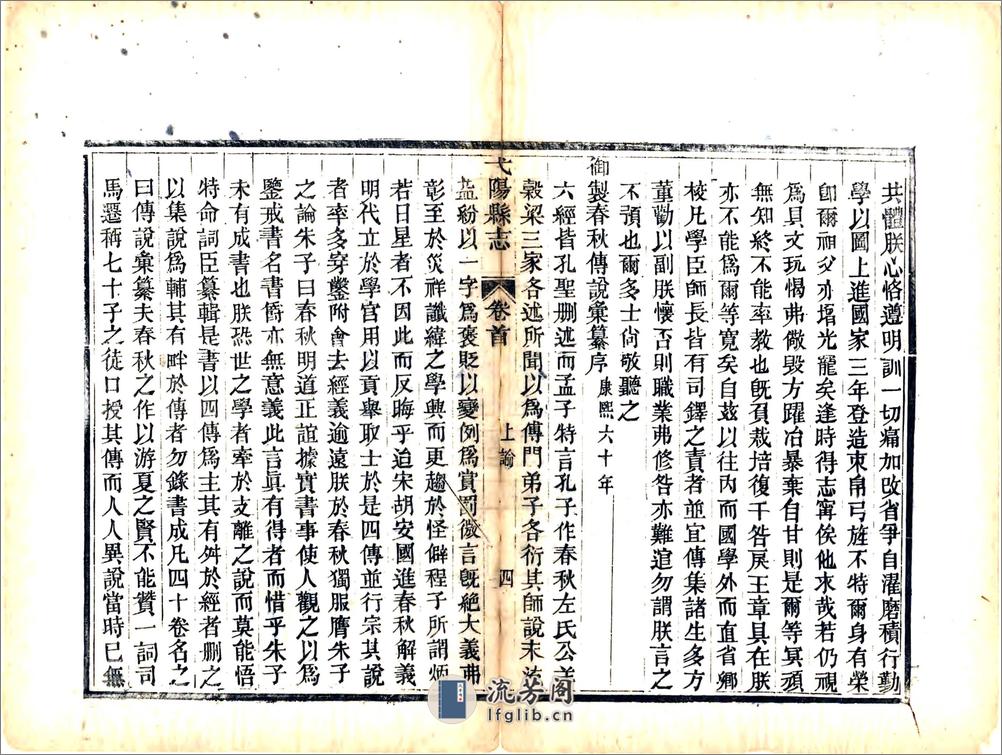 共體朕心恪遵明訓一切痛加改省爭自濯磨積行勤
學以圖上進國家三年登造束帛弓旌不特爾身有榮
卽爾祖父亦增光寵矣逢時得志寧俟他求哉若仍視
爲具文玩愒弗儆毀方躍冶暴棄自甘則是爾等冥頑
無知終不能率敎也旣負栽培復干咎戾王章具在朕
亦不能爲爾等寬矣自茲以往內而國學外而直省鄉
校凡學臣師長皆有司鐸之責者並宜傳集諸生多方
董勸以副朕懷否則職業弗修咎亦難逭勿謂朕言之
不預也爾多士尙敬聽之
御製春秋傳說彙纂序康熙六十年
六經皆孔聖刪述而孟子特言孔子作春秋左氏公羊
穀梁三家各述所聞以爲傳門弟子各衍其師說末流
益紛以一字爲褒貶以變例爲賞罰微言旣絕大義弗
弋陽縣志
卷首
上諭
四
彰至於災祥讖緯之學興而更趨於怪僻程子所謂炳
若日星者不因此而反晦乎迨宋胡安國進春秋解義
明代立於學官用以貢舉取士於是四傳並行宗其說
者率多穿鑿附會去經義逾遠朕於春秋獨服膺朱子
之論朱子曰春秋明道正誼據實書事使人觀之以爲
鑒戒書名書爵亦無意義此言眞有得者而惜乎朱子
未有成書也朕恐世之學者牽於支離之說而莫能悟
特命詞臣纂輯是書以四傳爲主其有舛於經者刪之
以集說爲輔其有畔於傳者勿錄書成凡四十卷名之
曰傳說彙纂夫春秋之作以游夏之賢不能贊一詞司
馬遷稱七十子之徒口授其傳而人人異說當時已無
流芳阁
lfglib.cn